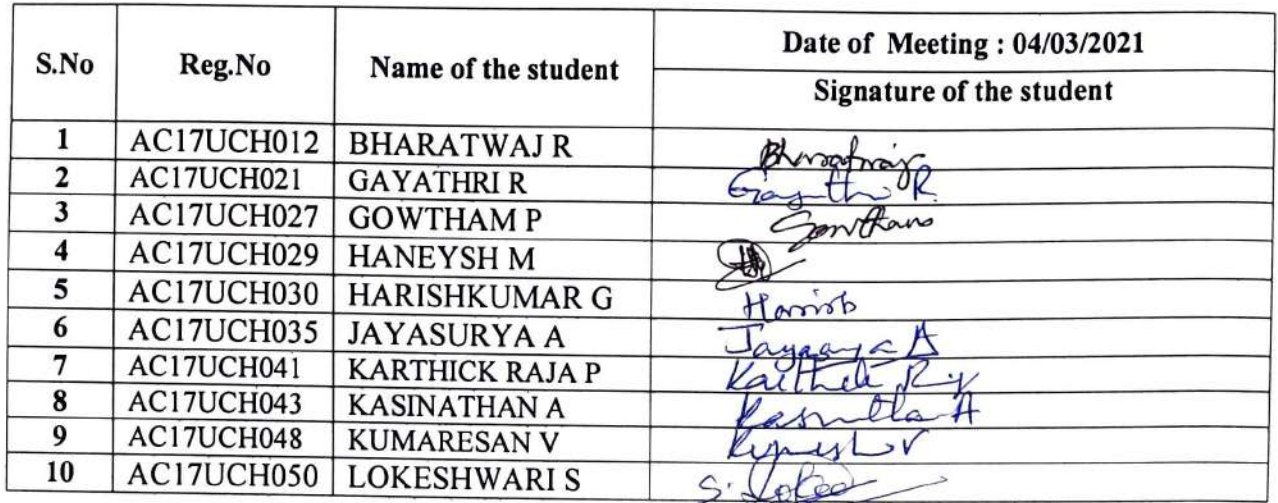 S.No Reg.No Name of the student Date of Meeting : 04/03/2021
Signature of the student
1 AC17UCH012 BHARATWAJ R Bharatwaj
2 AC17UCH021 GAYATHRI R Gayathri R
3 AC17UCH027 GOWTHAM P Gowtham
4 AC17UCH029 HANEYSH M
5 AC17UCH030 HARISHKUMAR G Harish
6 AC17UCH035 JAYASURYA A
7 AC17UCH041 KARTHICK RAJA P
8 AC17UCH043 KASINATHAN A
9 AC17UCH048 KUMARESAN V
10 AC17UCH050 LOKESHWARI S